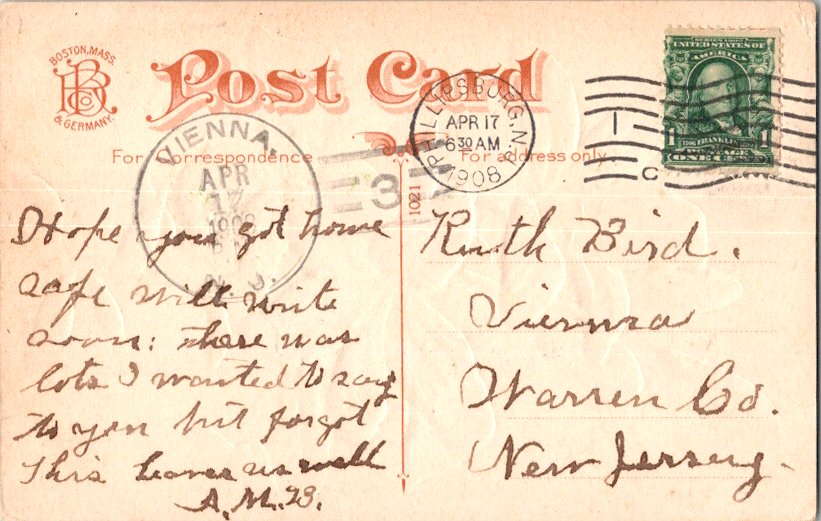 BOSTON, MASS.
BRCO
& GERMANY.
Post Card
For Correspondence
For address only.
1021
VIENNA,
APR
17
1908
N. J.
3
PHILLIPSBURG, N.J.
APR 17
6 30 AM
1908
1
C
SERIES 1902
UNITED STATES OF
AMERICA
1 FRANKLIN 1
ONE CENT
I Hope you got home
safe will write
soon: there was
lots I wanted to say
to you but forgot
This leaves us well
A.M.B.
Ruth Bird.
Vienna
Warren Co.
New Jersey.